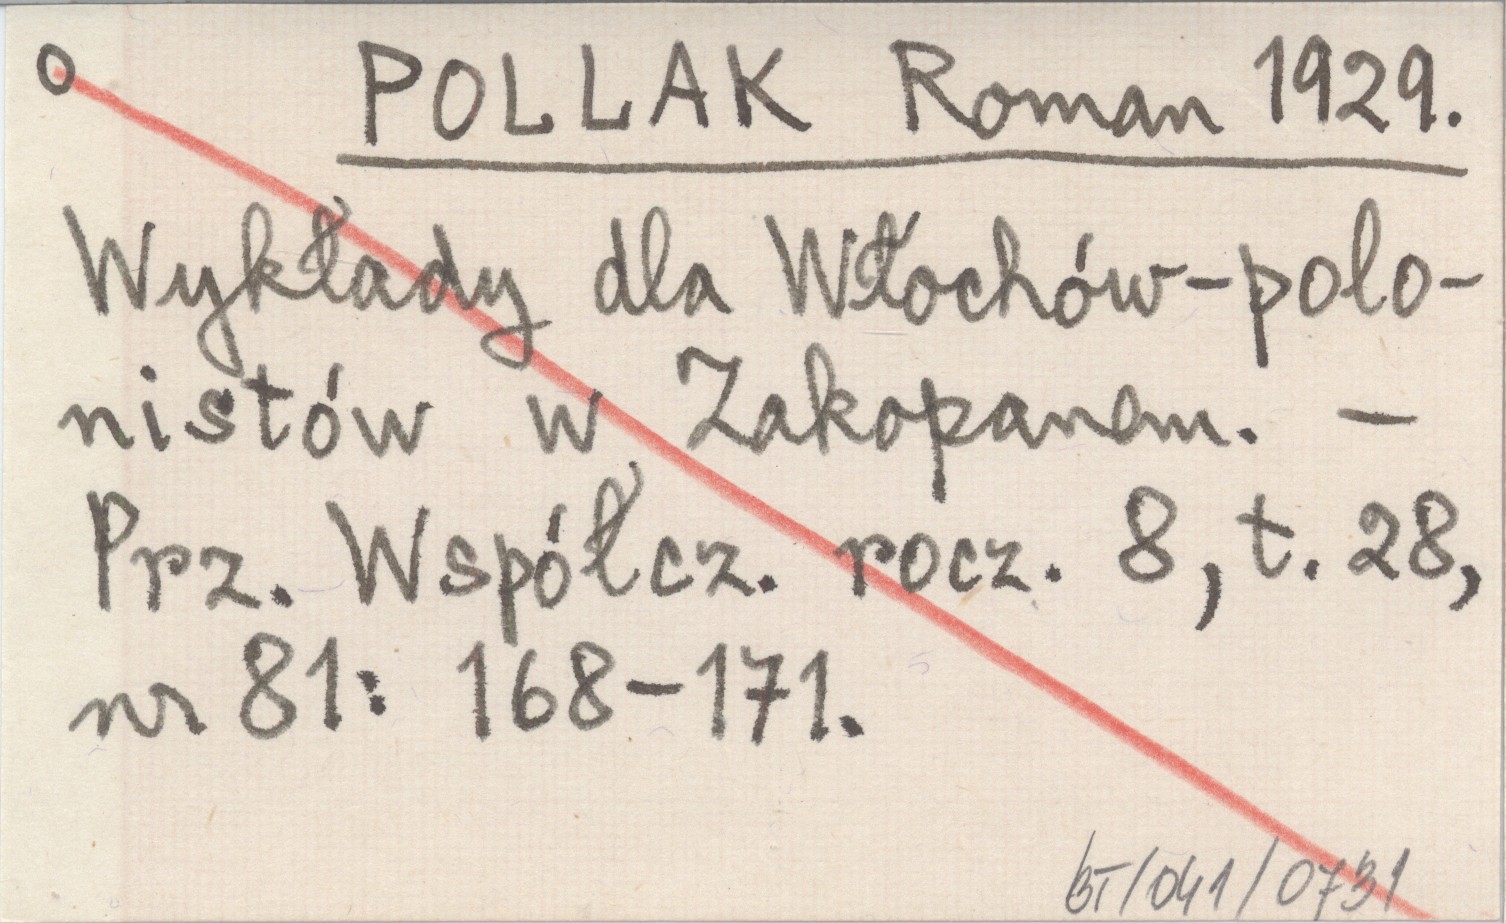 O POLLAK Roman 1929.
Wykłady dla Włochów-polo-
nistów w Zakopanem. —
Prz. Współcz. rocz. 8, t. 28,
nr 81: 168-171.
BT/041/0731